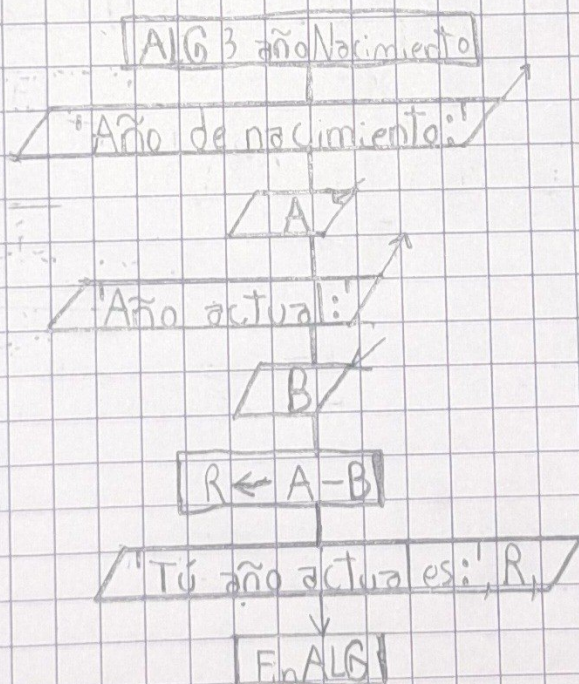 ALG 3 añoNacimiento
'Año de nacimiento:'
A
'Año actual:'
B
R ← A - B
'Tú año actual es:', R,
FinALG